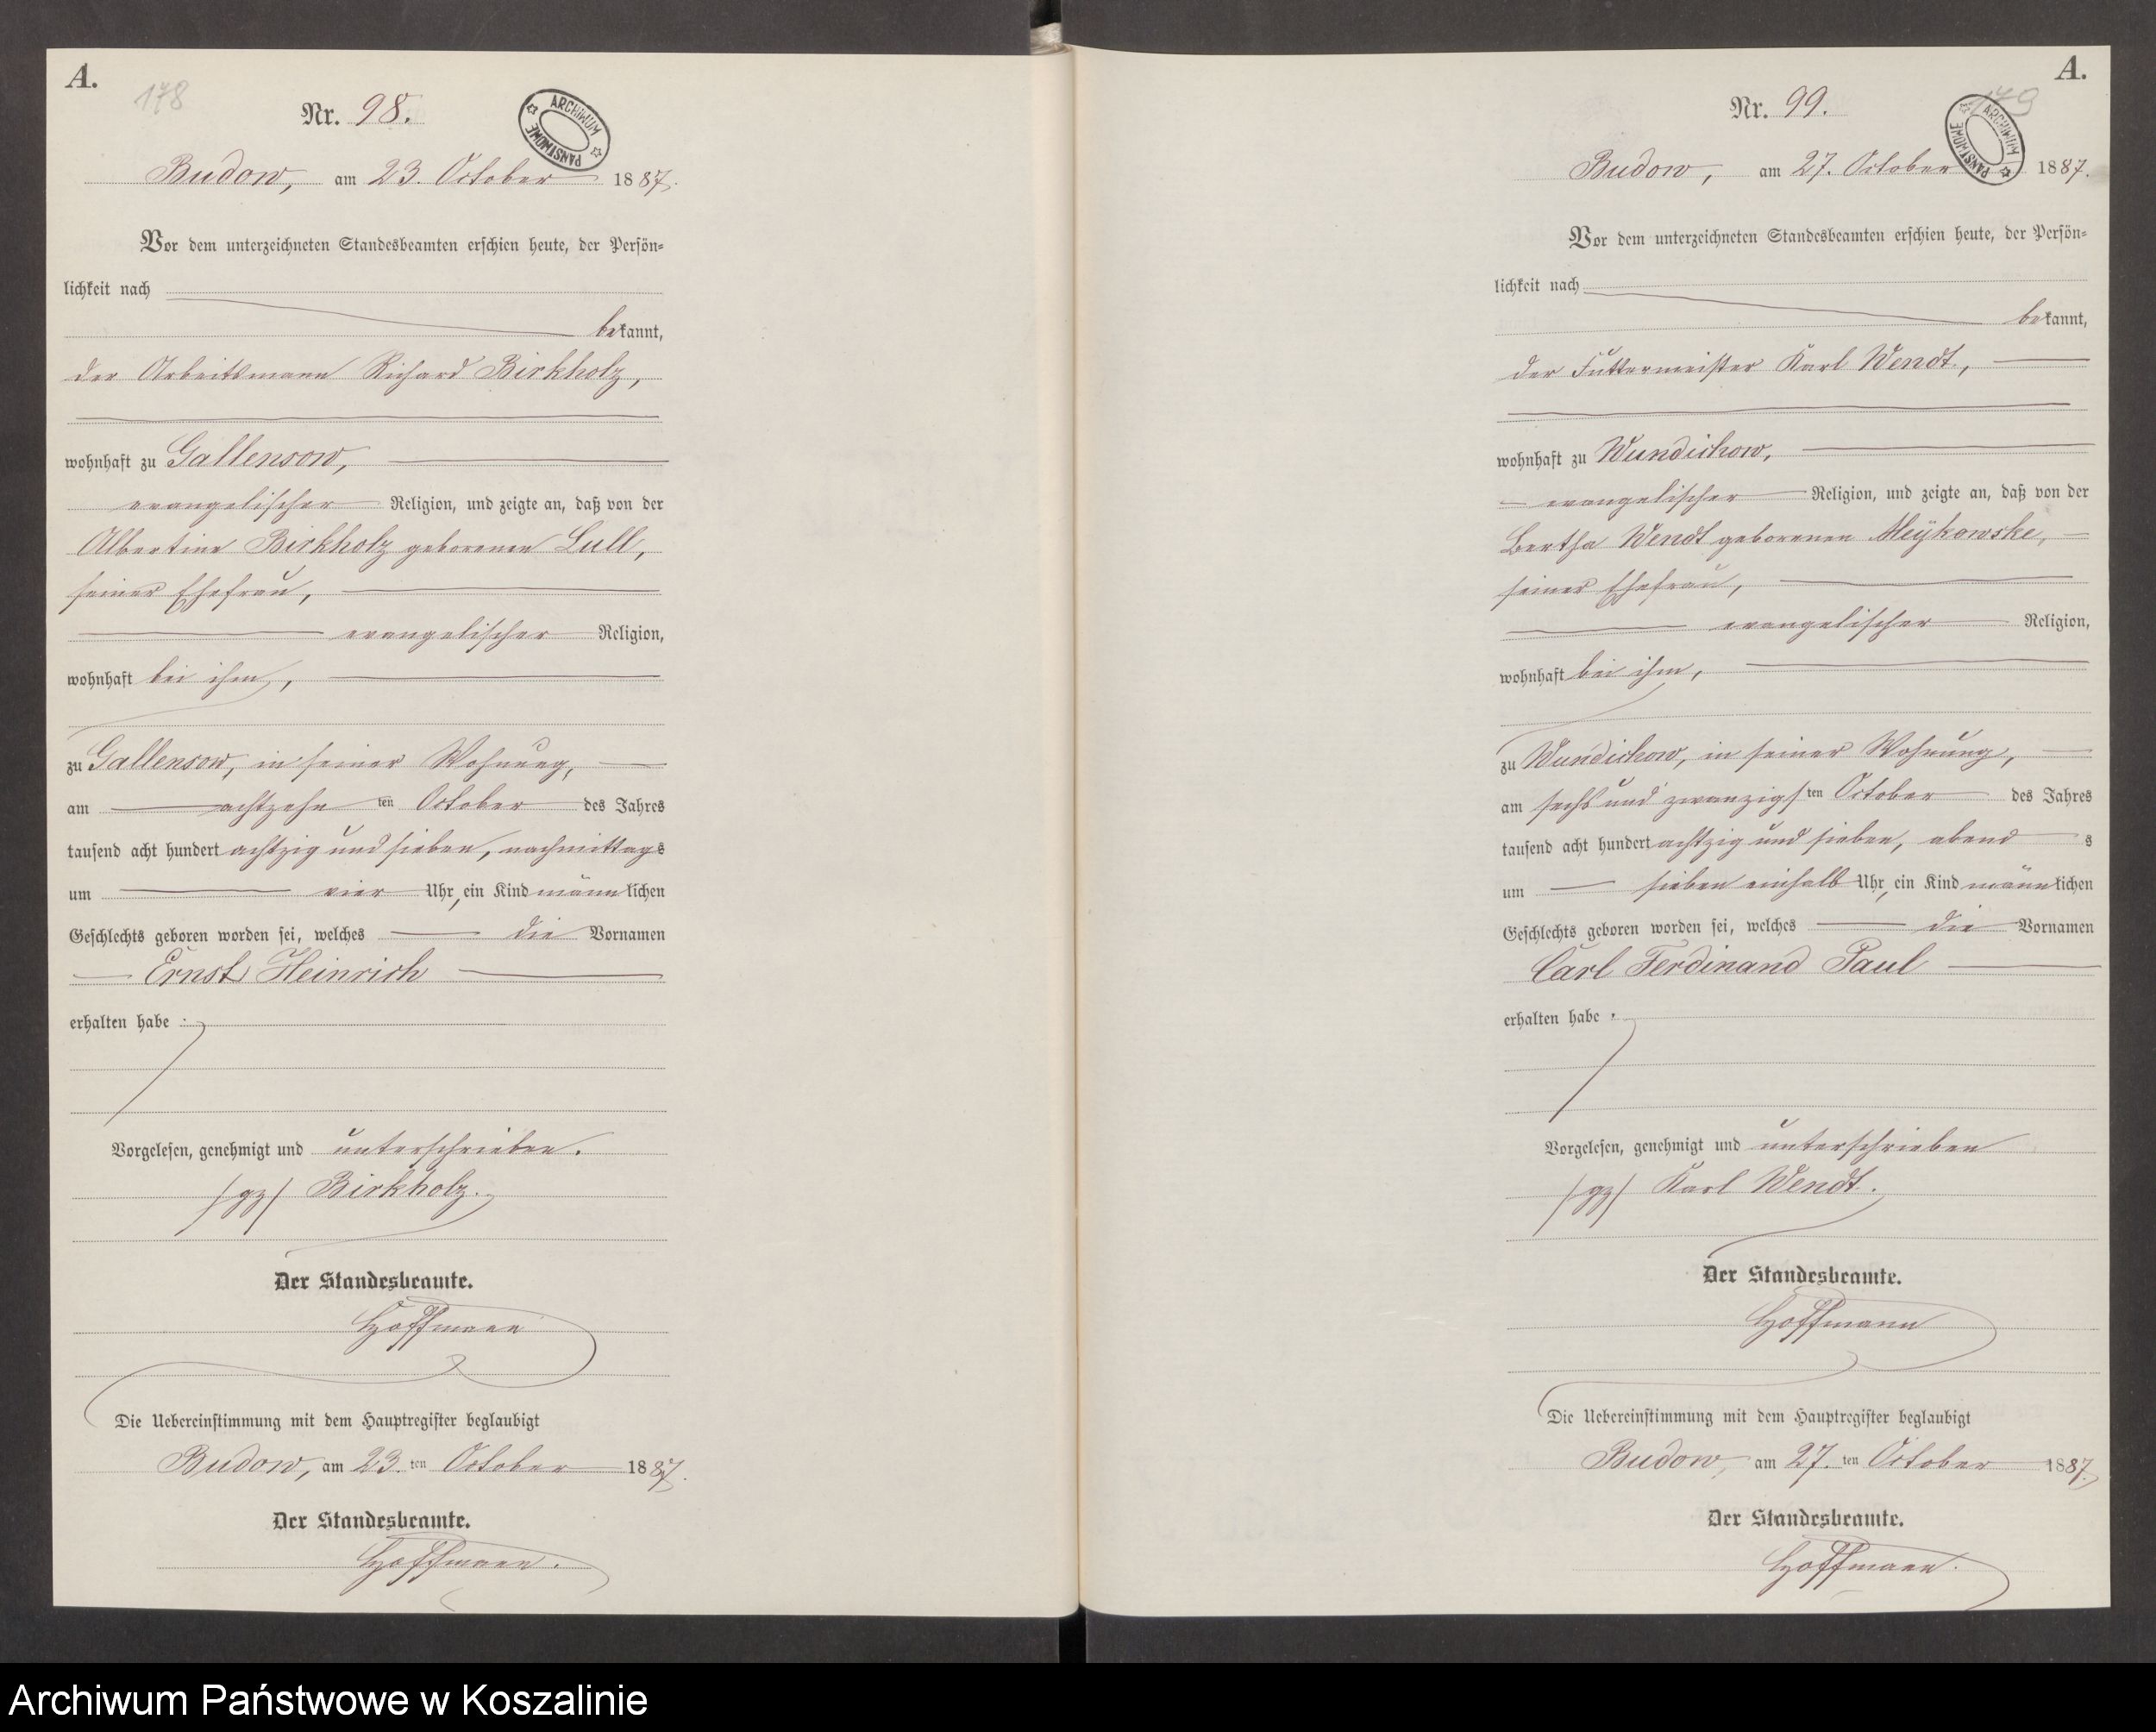 A.
178
Nr. 98.
ARCHIWUM PAŃSTWOWE
Budow, am 23. October 1887.
Vor dem unterzeichneten Standesbeamten erschien heute, der Persön-
lichkeit nach
bekannt,
der Arbeitsmann Richard Birkholz,
wohnhaft zu Gallensow,
evangelischer Religion, und zeigte an, daß von der
Albertine Birkholz geborenen Lull,
seiner Ehefrau,
evangelischer Religion,
wohnhaft bei ihm,
zu Gallensow, in seiner Wohnung,
am achtzehn ten October des Jahres
tausend acht hundert achtzig und sieben, nachmittags
um vier Uhr, ein Kind männlichen
Geschlechts geboren worden sei, welches die Vornamen
Ernst Heinrich
erhalten habe .
Vorgelesen, genehmigt und unterschrieben.
/gz/ Birkholz.
Der Standesbeamte.
Hoffmann
Die Uebereinstimmung mit dem Hauptregister beglaubigt
Budow, am 23. ten October 1887.
Der Standesbeamte.
Hoffmann.
A.
179
Nr. 99.
ARCHIWUM PAŃSTWOWE
Budow, am 27. October 1887.
Vor dem unterzeichneten Standesbeamten erschien heute, der Persön-
lichkeit nach
bekannt,
der Futtermeister Karl Wendt,
wohnhaft zu Wundichow,
evangelischer Religion, und zeigte an, daß von der
Bertha Wendt geborenen Meÿkowske,
seiner Ehefrau,
evangelischer Religion,
wohnhaft bei ihm,
zu Wundichow, in seiner Wohnung,
am sechs und zwanzigs ten October des Jahres
tausend acht hundert achtzig und sieben, abends
um sieben einhalb Uhr, ein Kind männlichen
Geschlechts geboren worden sei, welches die Vornamen
Carl Ferdinand Paul
erhalten habe .
Vorgelesen, genehmigt und unterschrieben
/gz/ Karl Wendt.
Der Standesbeamte.
Hoffmann
Die Uebereinstimmung mit dem Hauptregister beglaubigt
Budow, am 27. ten October 1887.
Der Standesbeamte.
Hoffmann.
Archiwum Państwowe w Koszalinie